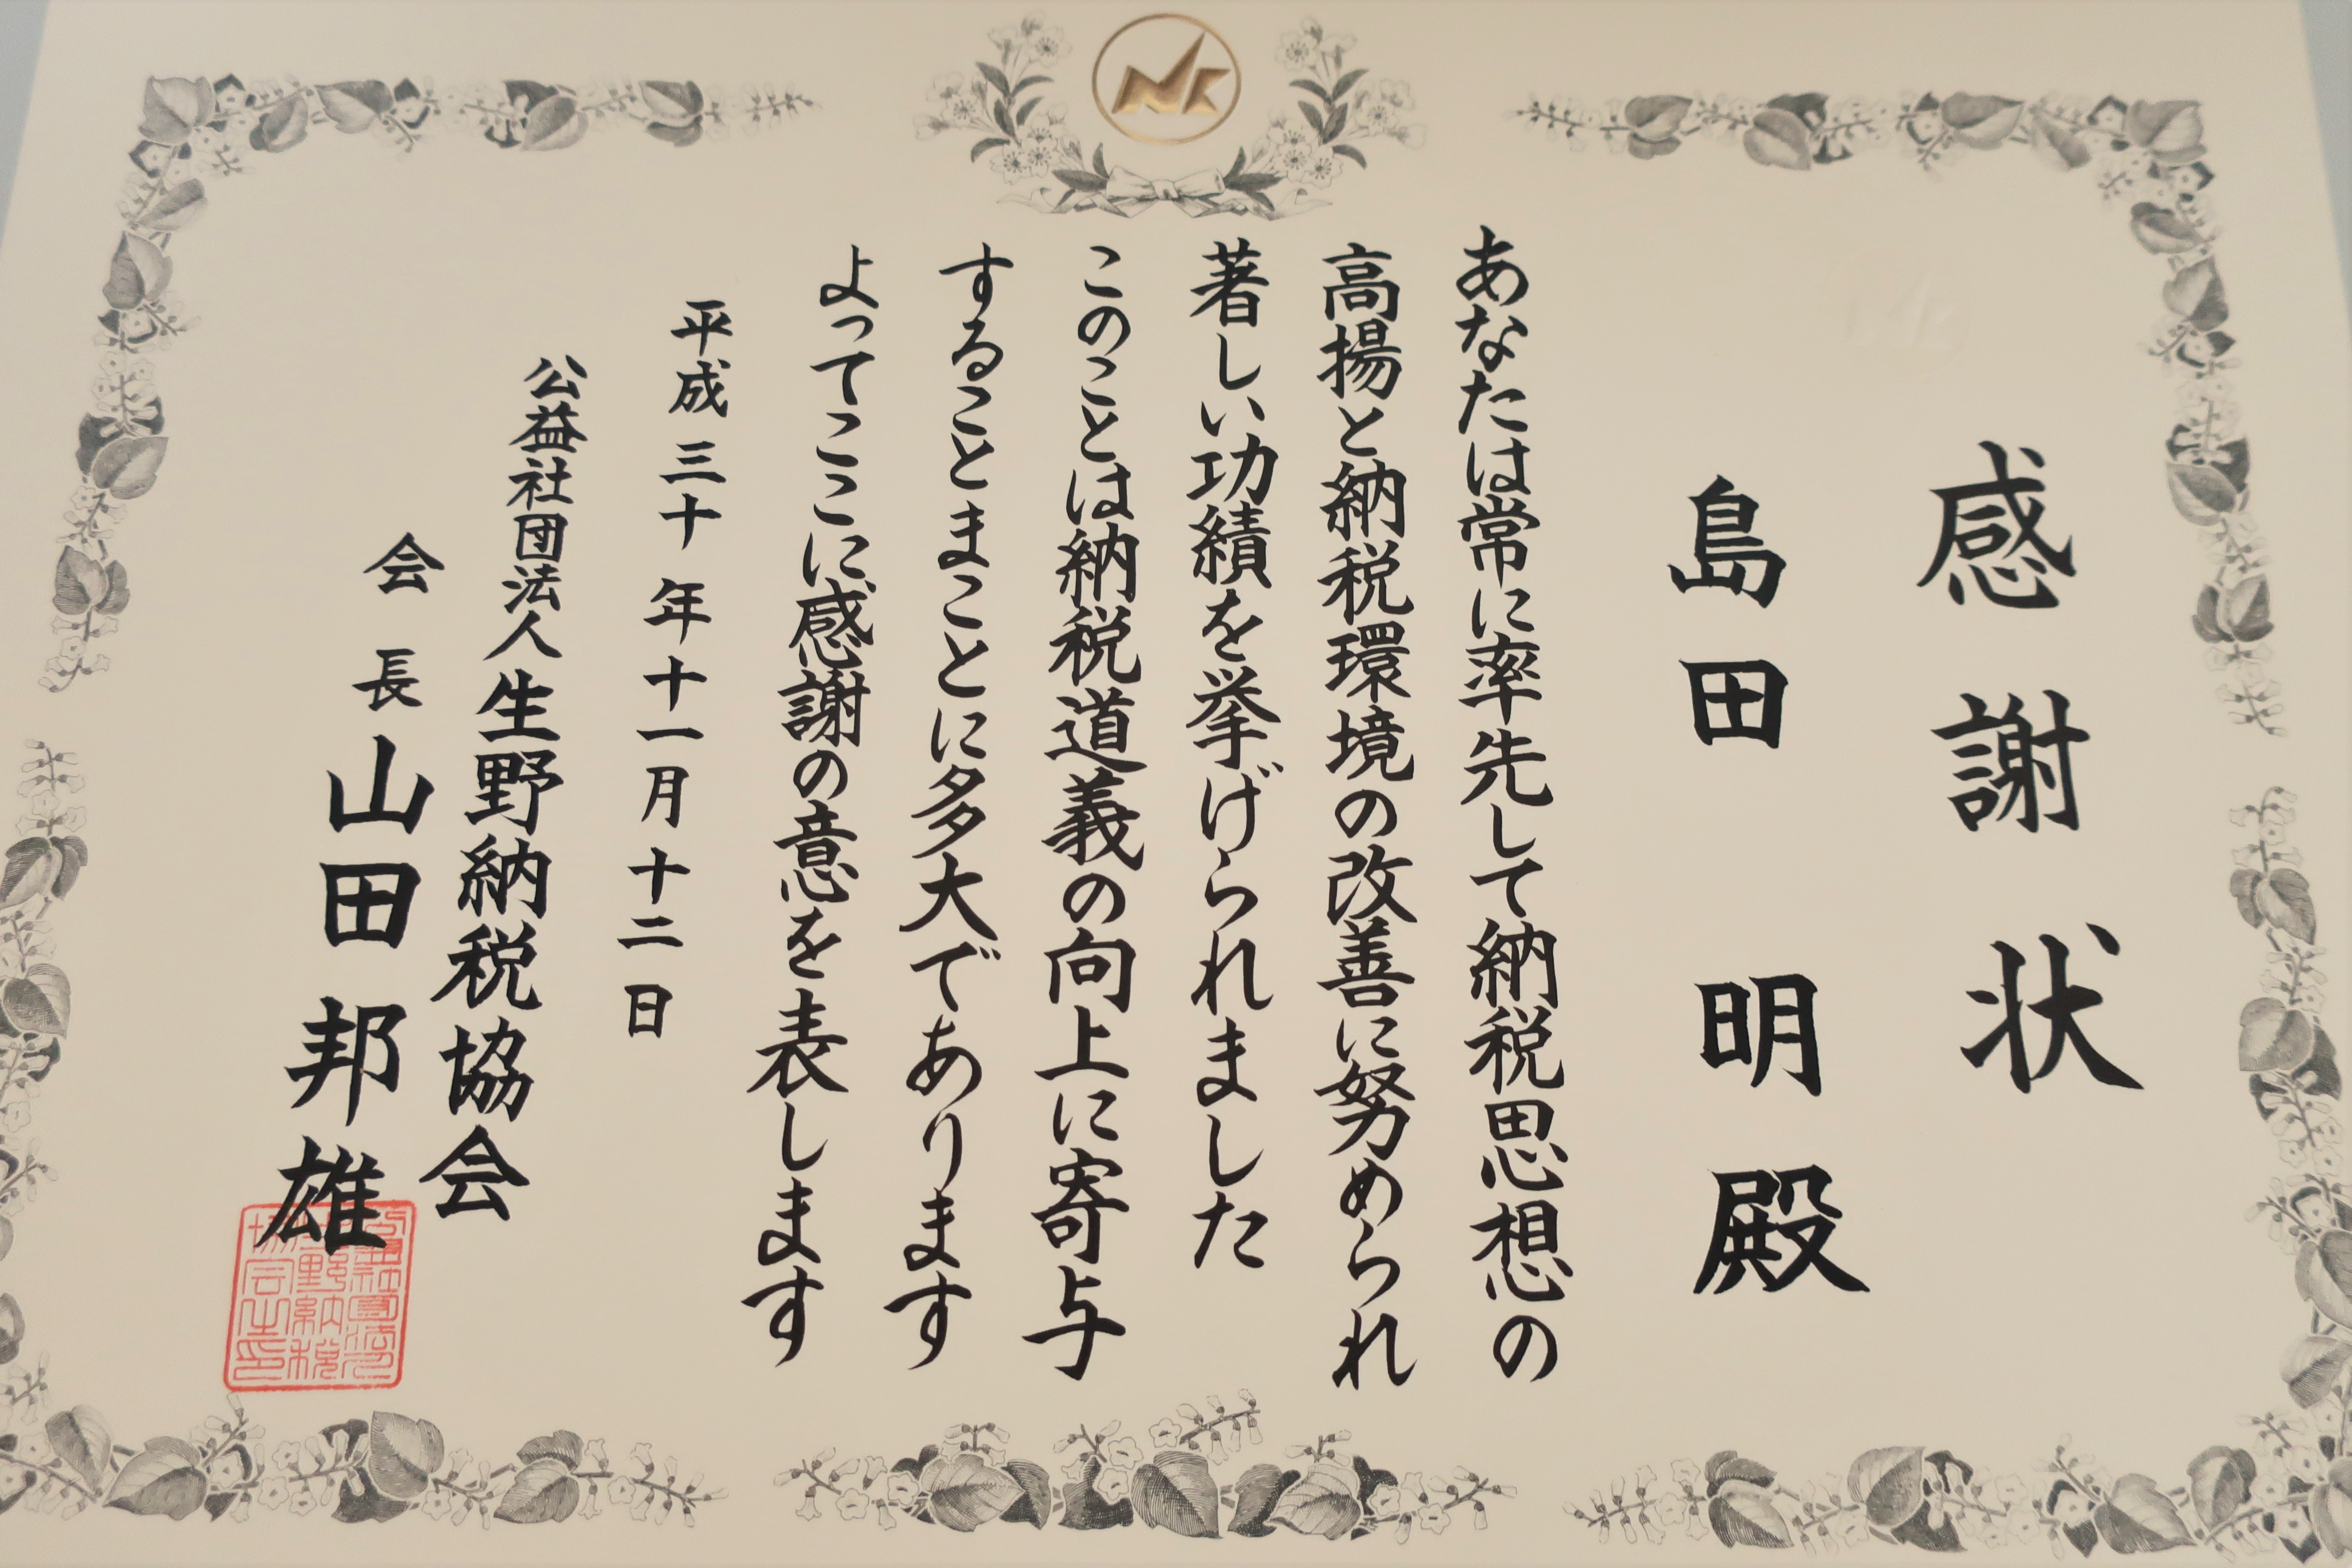 感謝状
島田 明 殿
あなたは常に率先して納税思想の
高揚と納税環境の改善に努められ
著しい功績を挙げられました
このことは納税道義の向上に寄与
することまことに多大であります
よってここに感謝の意を表します
平成三十年十一月十二日
公益社団法人生野納税協会
会長 山田邦雄